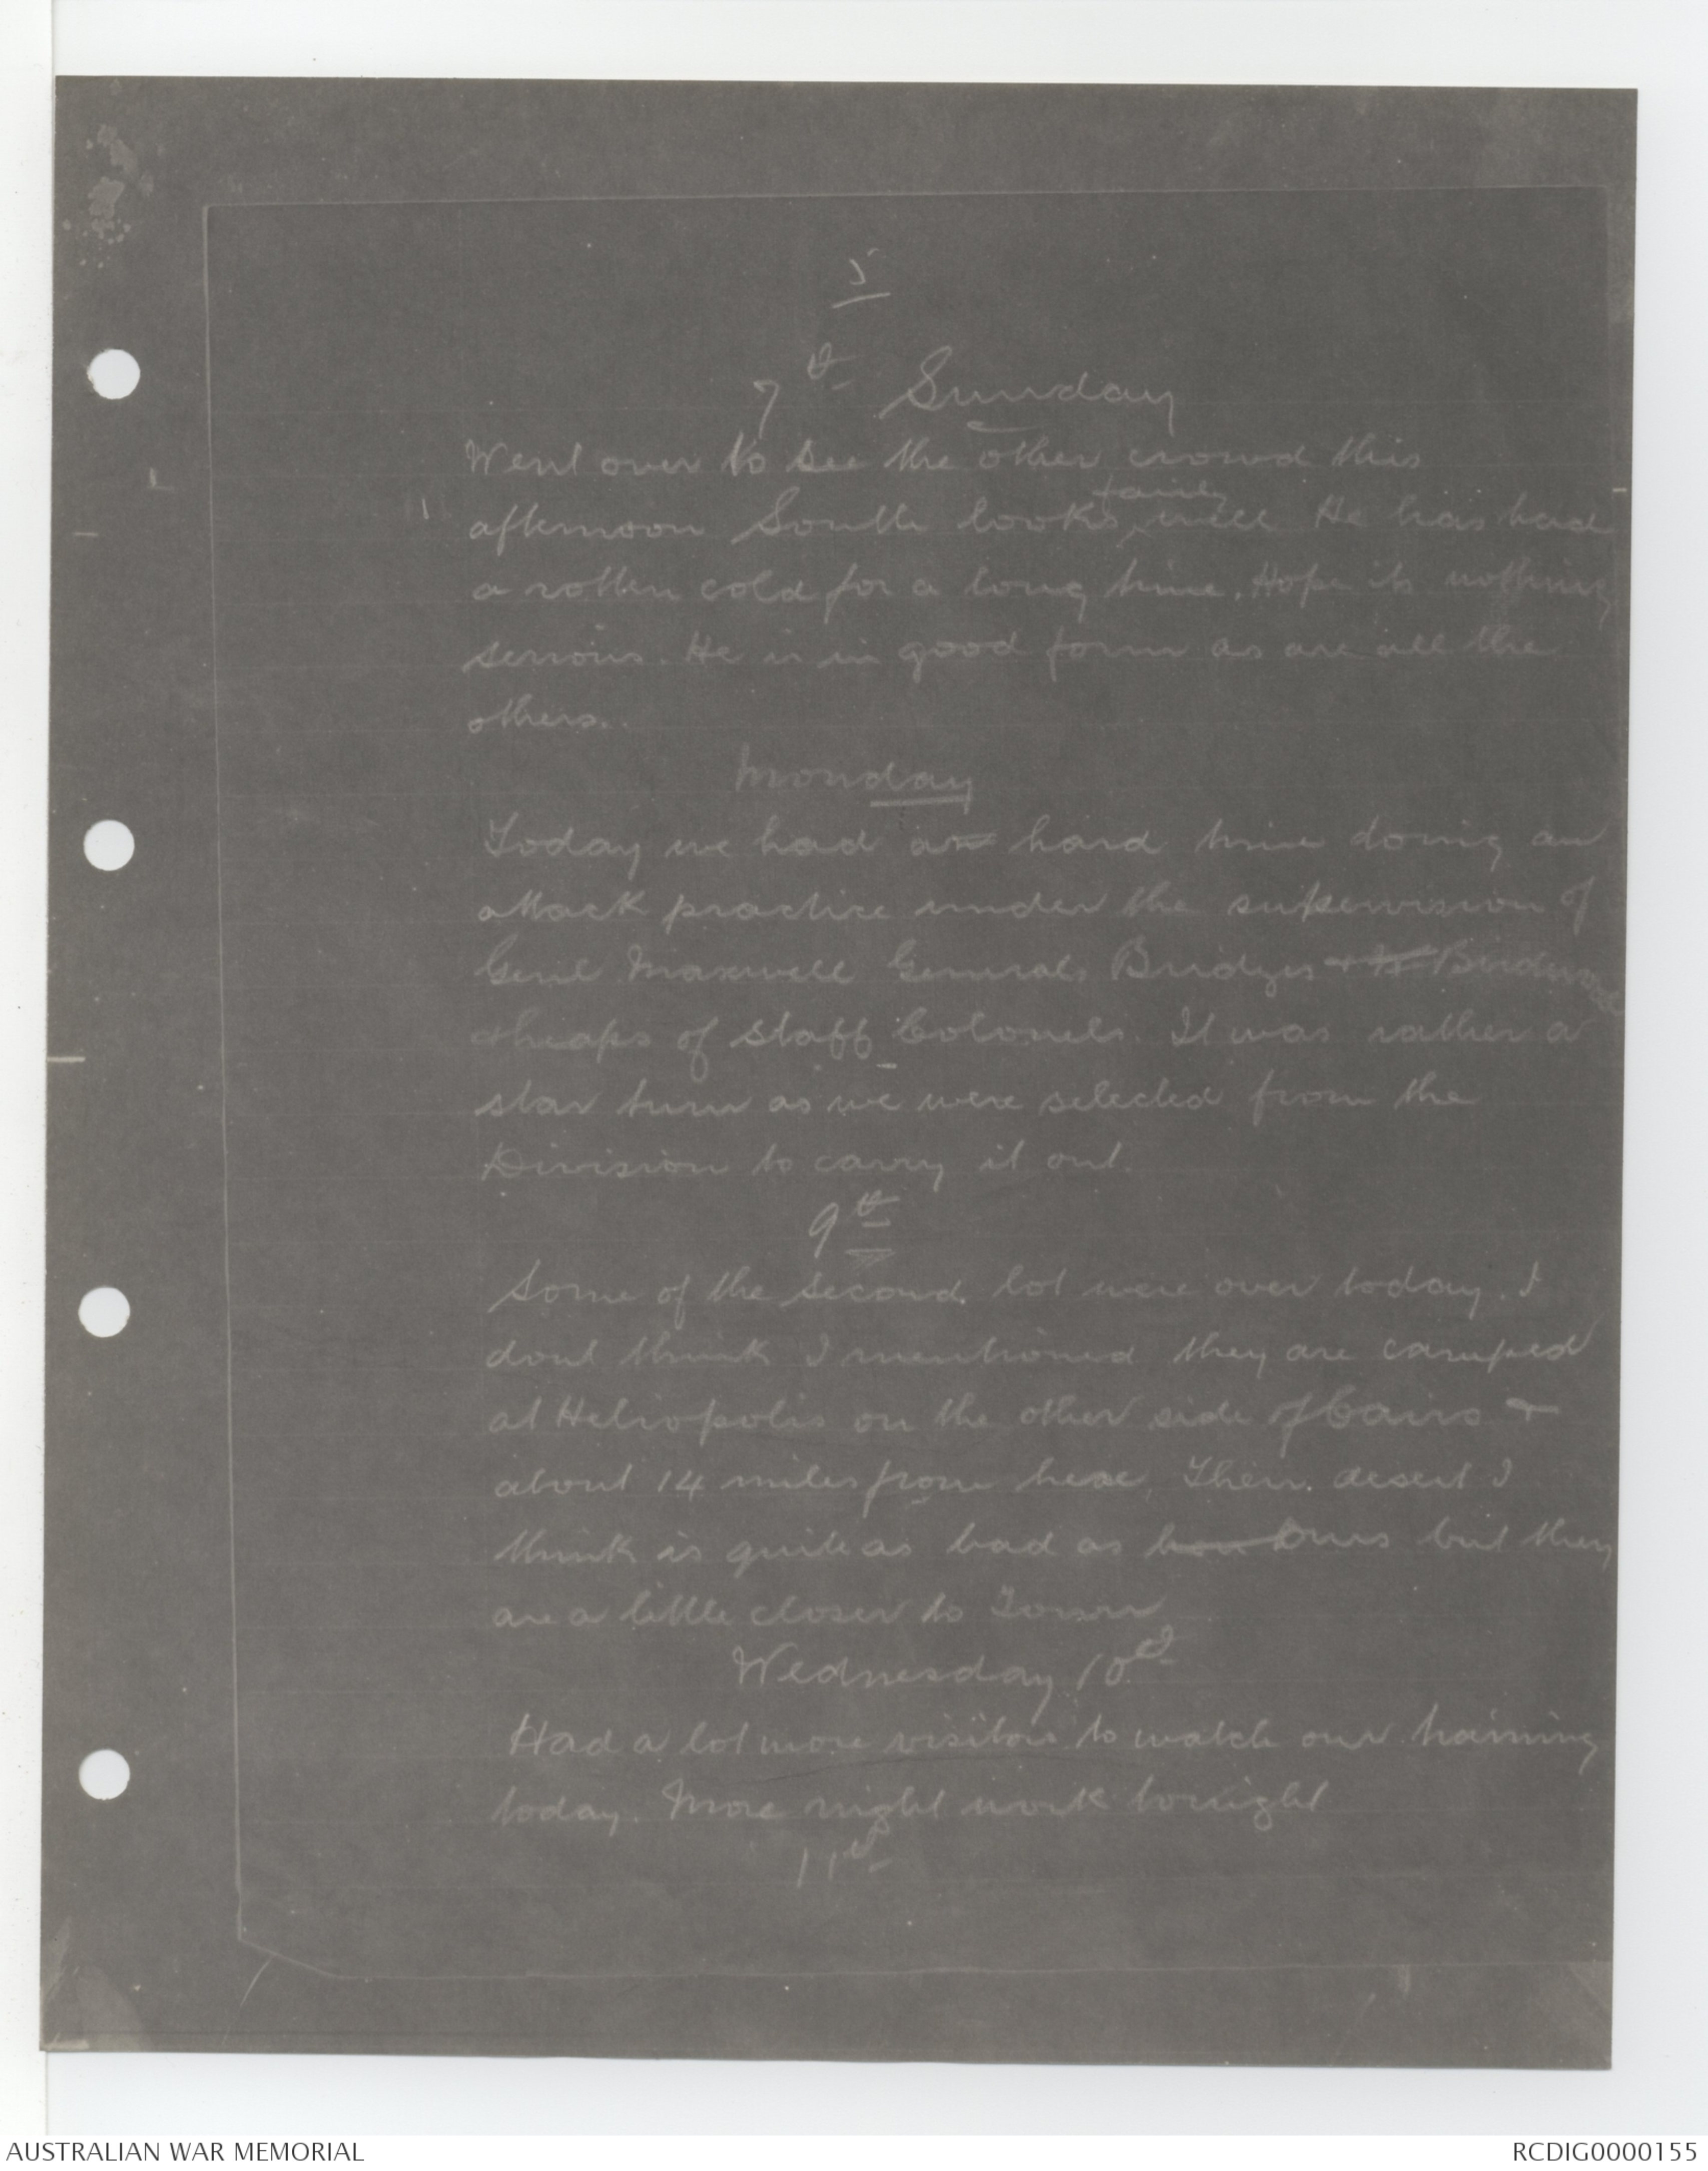 5
7th Sunday
Went over to see the other crowd this
afternoon South looks fairly well He has had
a rotten cold for a long time. Hope its nothing
serious. He is in good form as are all the
others.
Monday
Today we had a hard time doing an
attack practice under the supervision of
Genl Maxwell Generals Bridges Birdwood
& heaps of staff Colonels. It was rather a
star turn as we were selected from the
Division to carry it out.
9th
Some of the second lot were over today. I
dont think I mentioned they are camped
at Heliopolis on the other side of Cairo &
about 14 miles from here, Their desert I
think is quite as bad as Ours but they
are a little closer to Town
Wednesday 10th
Had a lot more visitors to watch our training
today. More night work tonight
11th
AUSTRALIAN WAR MEMORIAL
RCDIG0000155